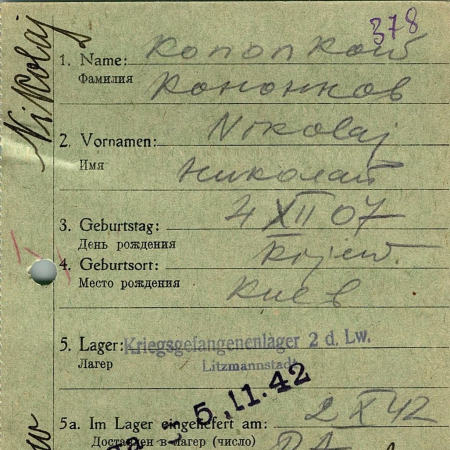 378
Nikolaj
1. Name: Kononkow
Фамилия Кононков
Nikolaj
2. Vornamen:
Имя Николай
3. Geburtstag: 4 XII 07
День рождения
4. Geburtsort: Kijew.
Место рождения Киев
5. Lager: Kriegsgefangenenlager 2 d. Lw.
Лагер Litzmannstadt
5.11.42
5a. Im Lager eingeliefert am: 2 X 42
Доставлен в лагер (число)